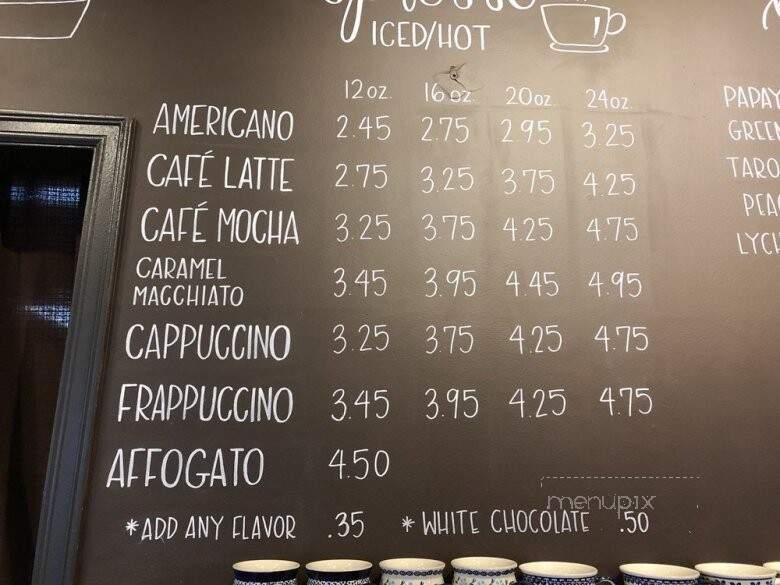 ICED/HOT
12oz. 16oz. 20oz. 24oz.
AMERICANO 2.45 2.75 2.95 3.25
CAFÉ LATTE 2.75 3.25 3.75 4.25
CAFÉ MOCHA 3.25 3.75 4.25 4.75
CARAMEL
MACCHIATO 3.45 3.95 4.45 4.95
CAPPUCCINO 3.25 3.75 4.25 4.75
FRAPPUCCINO 3.45 3.95 4.25 4.75
AFFOGATO 4.50
*ADD ANY FLAVOR .35 * WHITE CHOCOLATE .50
menupix
PAPAY
GREEN
TARO
PEAC
LYCH